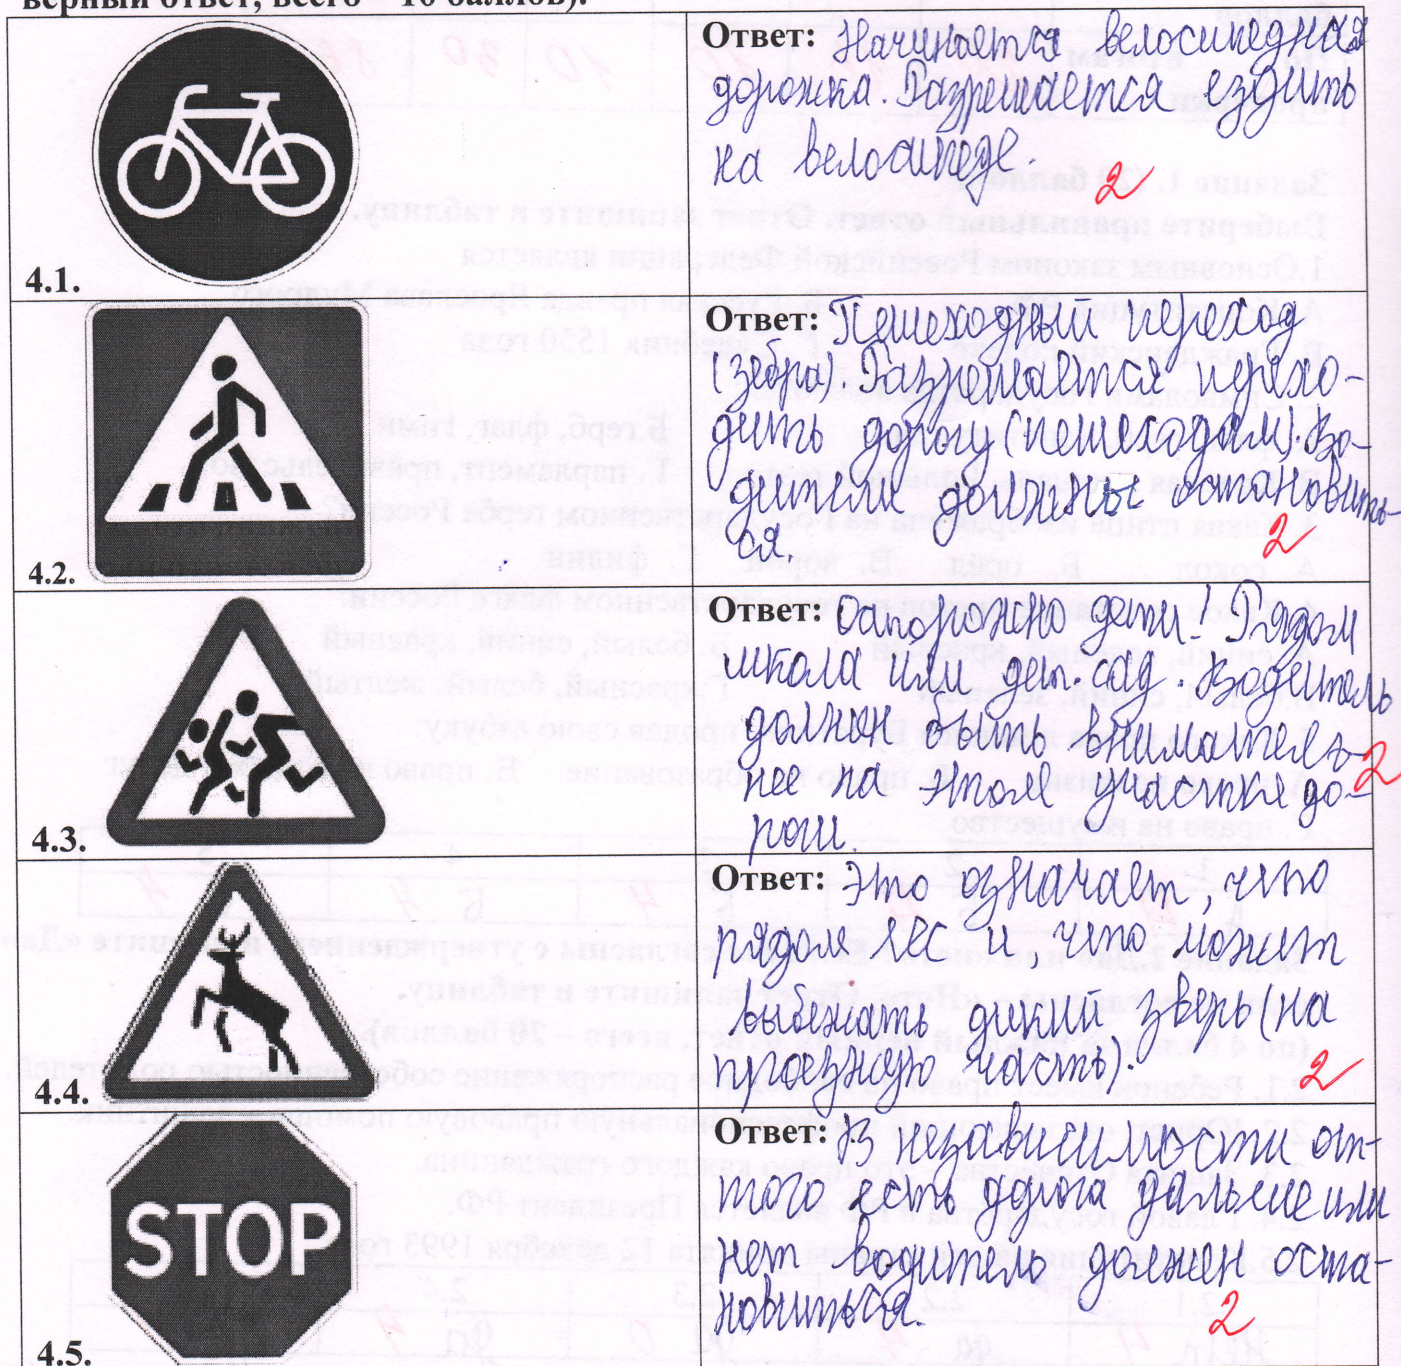 верный ответ, всего – 10 баллов).
4.1.
Ответ: Начинается велосипедная
дорожка. Разрешается ездить
на велосипеде.
2
4.2.
Ответ: Пешеходный переход
(зебра). Разрешается перехо-
дить дорогу (пешеходам). Во-
дители должны остановить-
ся.
2
4.3.
Ответ: Осторожно дети! Рядом
школа или дет. сад. Водитель
должен быть вниматель-
нее на этом участке до-
роги.
2
4.4.
Ответ: Это означает, что
рядом лес и, что может
выбежать дикий зверь (на
проезную часть).
2
STOP
4.5.
Ответ: В независимости от-
того есть дорога дальше или
нет водитель должен оста-
новиться.
2